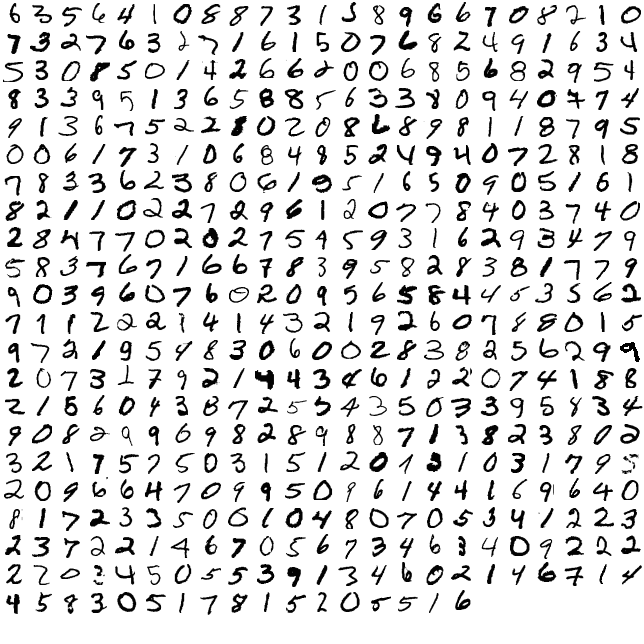 6 3 5 6 4 1 0 8 8 7 3 1 5 8 9 6 6 7 0 8 2 1 0
7 3 2 7 6 3 2 7 1 6 1 5 0 7 6 8 2 4 9 1 6 3 4
5 3 0 8 5 0 1 4 2 6 6 2 0 0 6 8 5 6 8 2 9 5 4
8 3 3 9 5 1 3 6 5 8 8 5 6 3 3 8 0 9 4 0 7 7 4
9 1 3 6 7 5 2 2 8 0 2 0 8 6 8 9 8 1 1 8 7 9 5
0 0 6 1 7 3 1 0 6 8 4 8 5 2 4 9 4 0 7 2 8 1 8
7 8 3 3 6 2 3 8 0 6 1 9 5 1 6 5 0 9 0 5 1 6 1
8 2 1 1 0 2 2 7 2 9 6 1 2 0 7 7 8 4 0 3 7 4 0
2 8 4 7 7 0 2 0 2 7 5 9 5 9 3 1 6 2 9 3 4 7 9
5 8 3 7 6 7 1 6 6 7 8 3 9 5 8 2 8 3 8 1 7 7 9
9 0 3 9 6 0 7 6 0 2 0 9 5 6 5 8 4 4 4 5 3 5 6 2
7 1 1 2 2 2 9 4 1 4 3 2 1 9 2 6 0 7 8 8 0 1 5
9 7 2 1 9 5 4 8 3 0 6 0 0 2 8 3 8 2 5 6 2 9 9
2 0 7 3 1 7 9 2 1 4 4 3 4 6 1 2 2 0 7 4 1 8 8
2 1 5 6 0 4 3 8 7 2 5 5 4 3 5 0 3 3 9 5 8 3 4
9 0 8 2 9 9 6 9 8 2 8 9 8 8 7 1 3 8 2 3 8 0 2
3 2 1 7 5 7 5 0 3 1 5 1 2 0 1 3 1 0 3 1 7 9 5
2 0 9 6 6 4 7 0 9 9 5 0 9 6 1 4 4 1 6 9 6 4 0
8 1 7 2 3 3 5 0 0 1 0 4 8 0 7 0 5 3 4 1 2 2 3
2 3 7 2 2 1 4 6 7 0 5 6 7 3 4 6 3 4 0 9 2 2 2
2 2 0 3 4 5 0 5 5 3 9 1 3 4 6 0 2 1 4 6 7 1 4
4 5 8 3 0 5 1 7 8 1 5 2 0 5 5 1 6